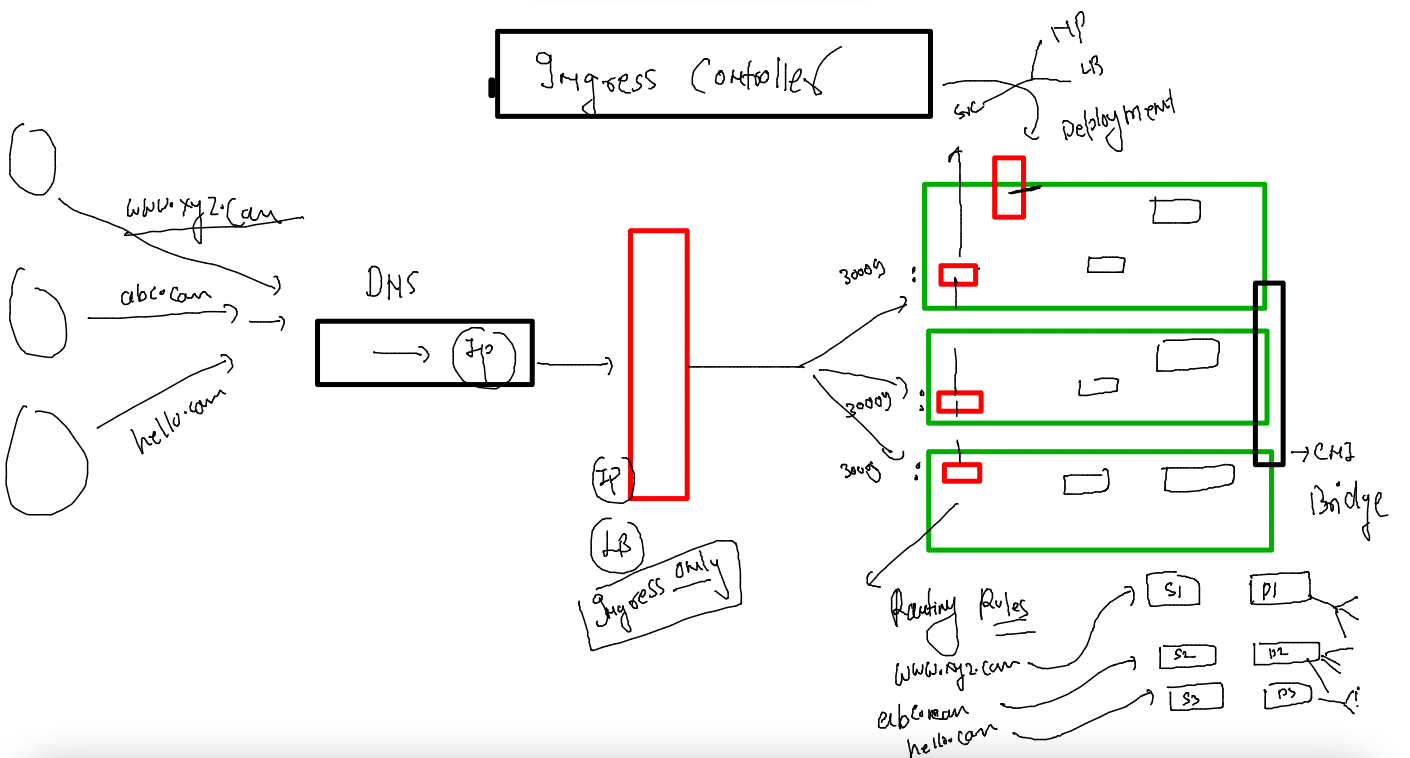 Ingress Controller
NP
LB
SVC
Deployment
www.xyz.com
abc.com
hello.com
DNS
IP
30009
30009
3009
IP
LB
Ingress only
CNI
Bridge
Routing Rules
www.xyz.com
abc.com
hello.com
S1
D1
S2
D2
S3
D3